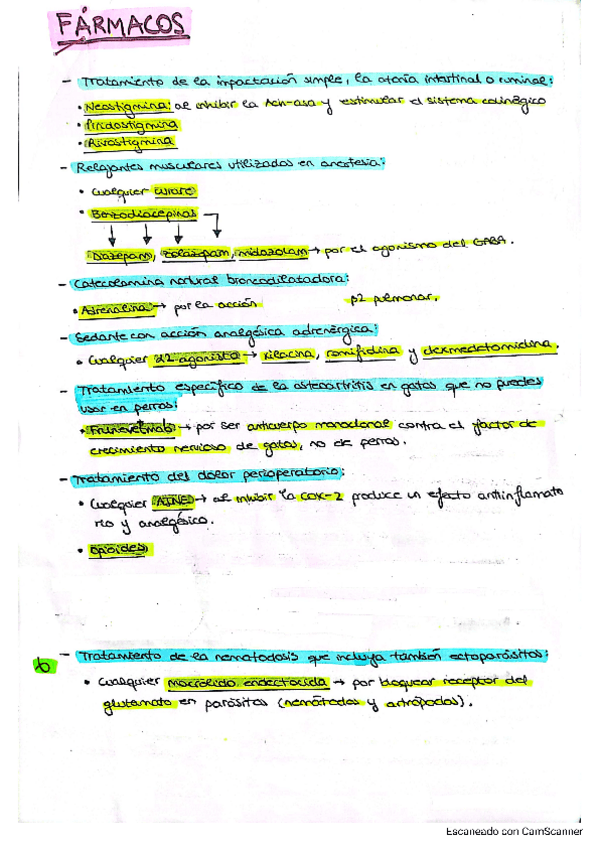 FÁRMACOS
- Tratamiento de la impactación simple, la atonía intestinal o ruminal:
• Neostigmina: al inhibir la Ach-asa y estimular el sistema colinérgico
• Piridostigmina
• Rivastigmina
- Relajantes musculares utilizados en anestesia:
• Cualquier curare
• Benzodiacepinas
Diazepam, zolazepam, midazolam → por el agonismo del GABA.
- Catecolamina natural broncodilatadora:
• Adrenalina: → por la acción β2 pulmonar.
- Sedante con acción analgésica adrenérgica:
• Cualquier α2 agonista → xilacina, romifidina y dexmedetomidina.
- Tratamiento específico de la osteoartritis en gatos que no puedes
usar en perros:
• Frunevetmab → por ser anticuerpo monoclonal contra el factor de
crecimiento nervioso de gatos, no de perros.
- Tratamiento del dolor perioperatorio:
• Cualquier AINE → al inhibir la COX-2 produce un efecto antiinflamato
rio y analgésico.
• Opioides
- Tratamiento de la nematodosis que incluya también ectoparásitos:
• Cualquier macrólido endectocida → por bloquear receptor del
glutamato en parásitos (nemátodos y artrópodos).
Escaneado con CamScanner